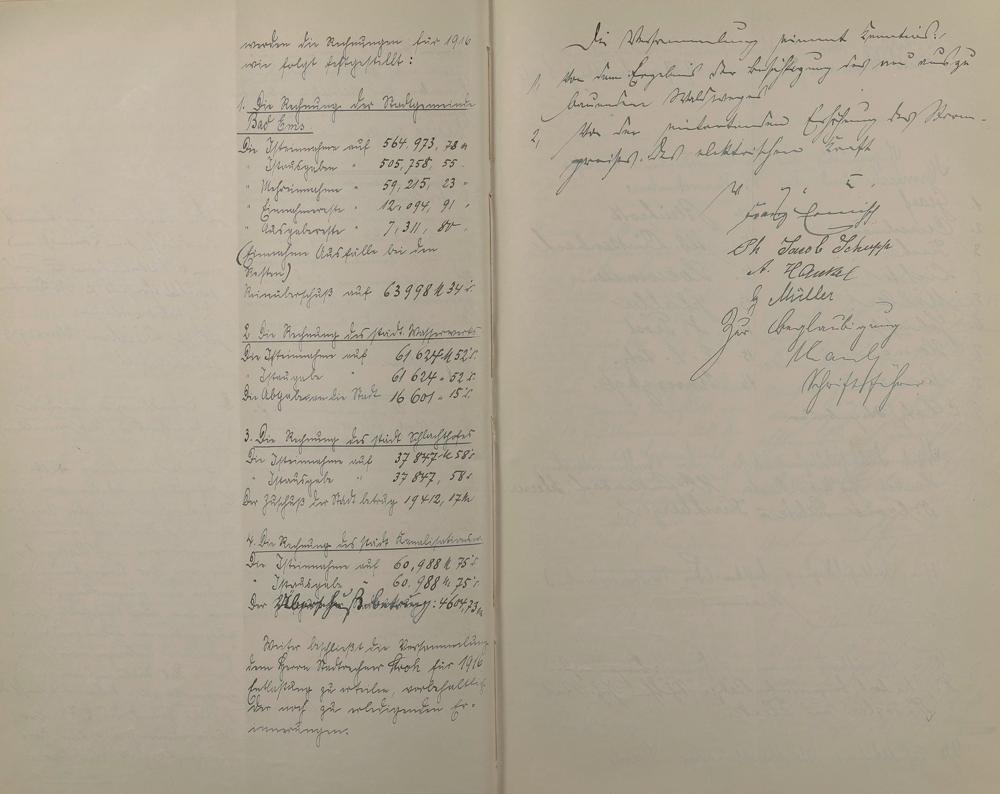 werden die Rechnungen für 1916
wie folgt festgestellt:
1. Die Rechnung der Stadtgemeinde
Bad Ems
Die Isteinnahme auf 564.973, 78 M
" Istausgaben " 505,758, 55 "
" Mehreinnahme " 59,215, 23 "
" Einnahmereste " 12,094, 91 "
" Ausgabereste " 7,311, 80 "
(Einnahmen Ausfälle bei den
Resten)
Reinüberschuß auf 63998 M 34 S.
2 Die Rechnung des städt. Wasserwerks
Die Isteinnahme auf 61 624 M 52 S.
" Istausgabe " 61 624 " 52 S.
Die Abgabe an die Stadt 16 601 " 15 S.
3. Die Rechnung des städt Schlachthofes
Die Isteinnahme auf 37 847 M 58 S
" Istausgabe " 37 847, 58 S
Der Zuschuß der Stadt betrug 19412, 17 M
4. Die Rechnung des städt Kanalisations
Die Isteinnahme auf 60,988 M 75 S.
" Istausgabe 60.988 M 75 S.
Der Überschuß betrug: 4604,73 M
Weiter beschließt die Versammlung
dem Herrn Stadtrechner Stroh für 1916
Entlastung zu erteilen, vorbehaltlich
der noch zu erledigenden Er-
innerungen.
Die Versammlung nimmt Kenntnis:
1, Von dem Ergebnis der Besichtigung des neu auszu
bauenden Waldweges
2, Von der eintretenden Erhöhung des Strom-
preises des elektrischen Kraft
v. g. u.
Franz Ermisch
Ph. Jacob Schupp
A. Hankel
G Müller
Zur Beglaubigung
Schriftführer